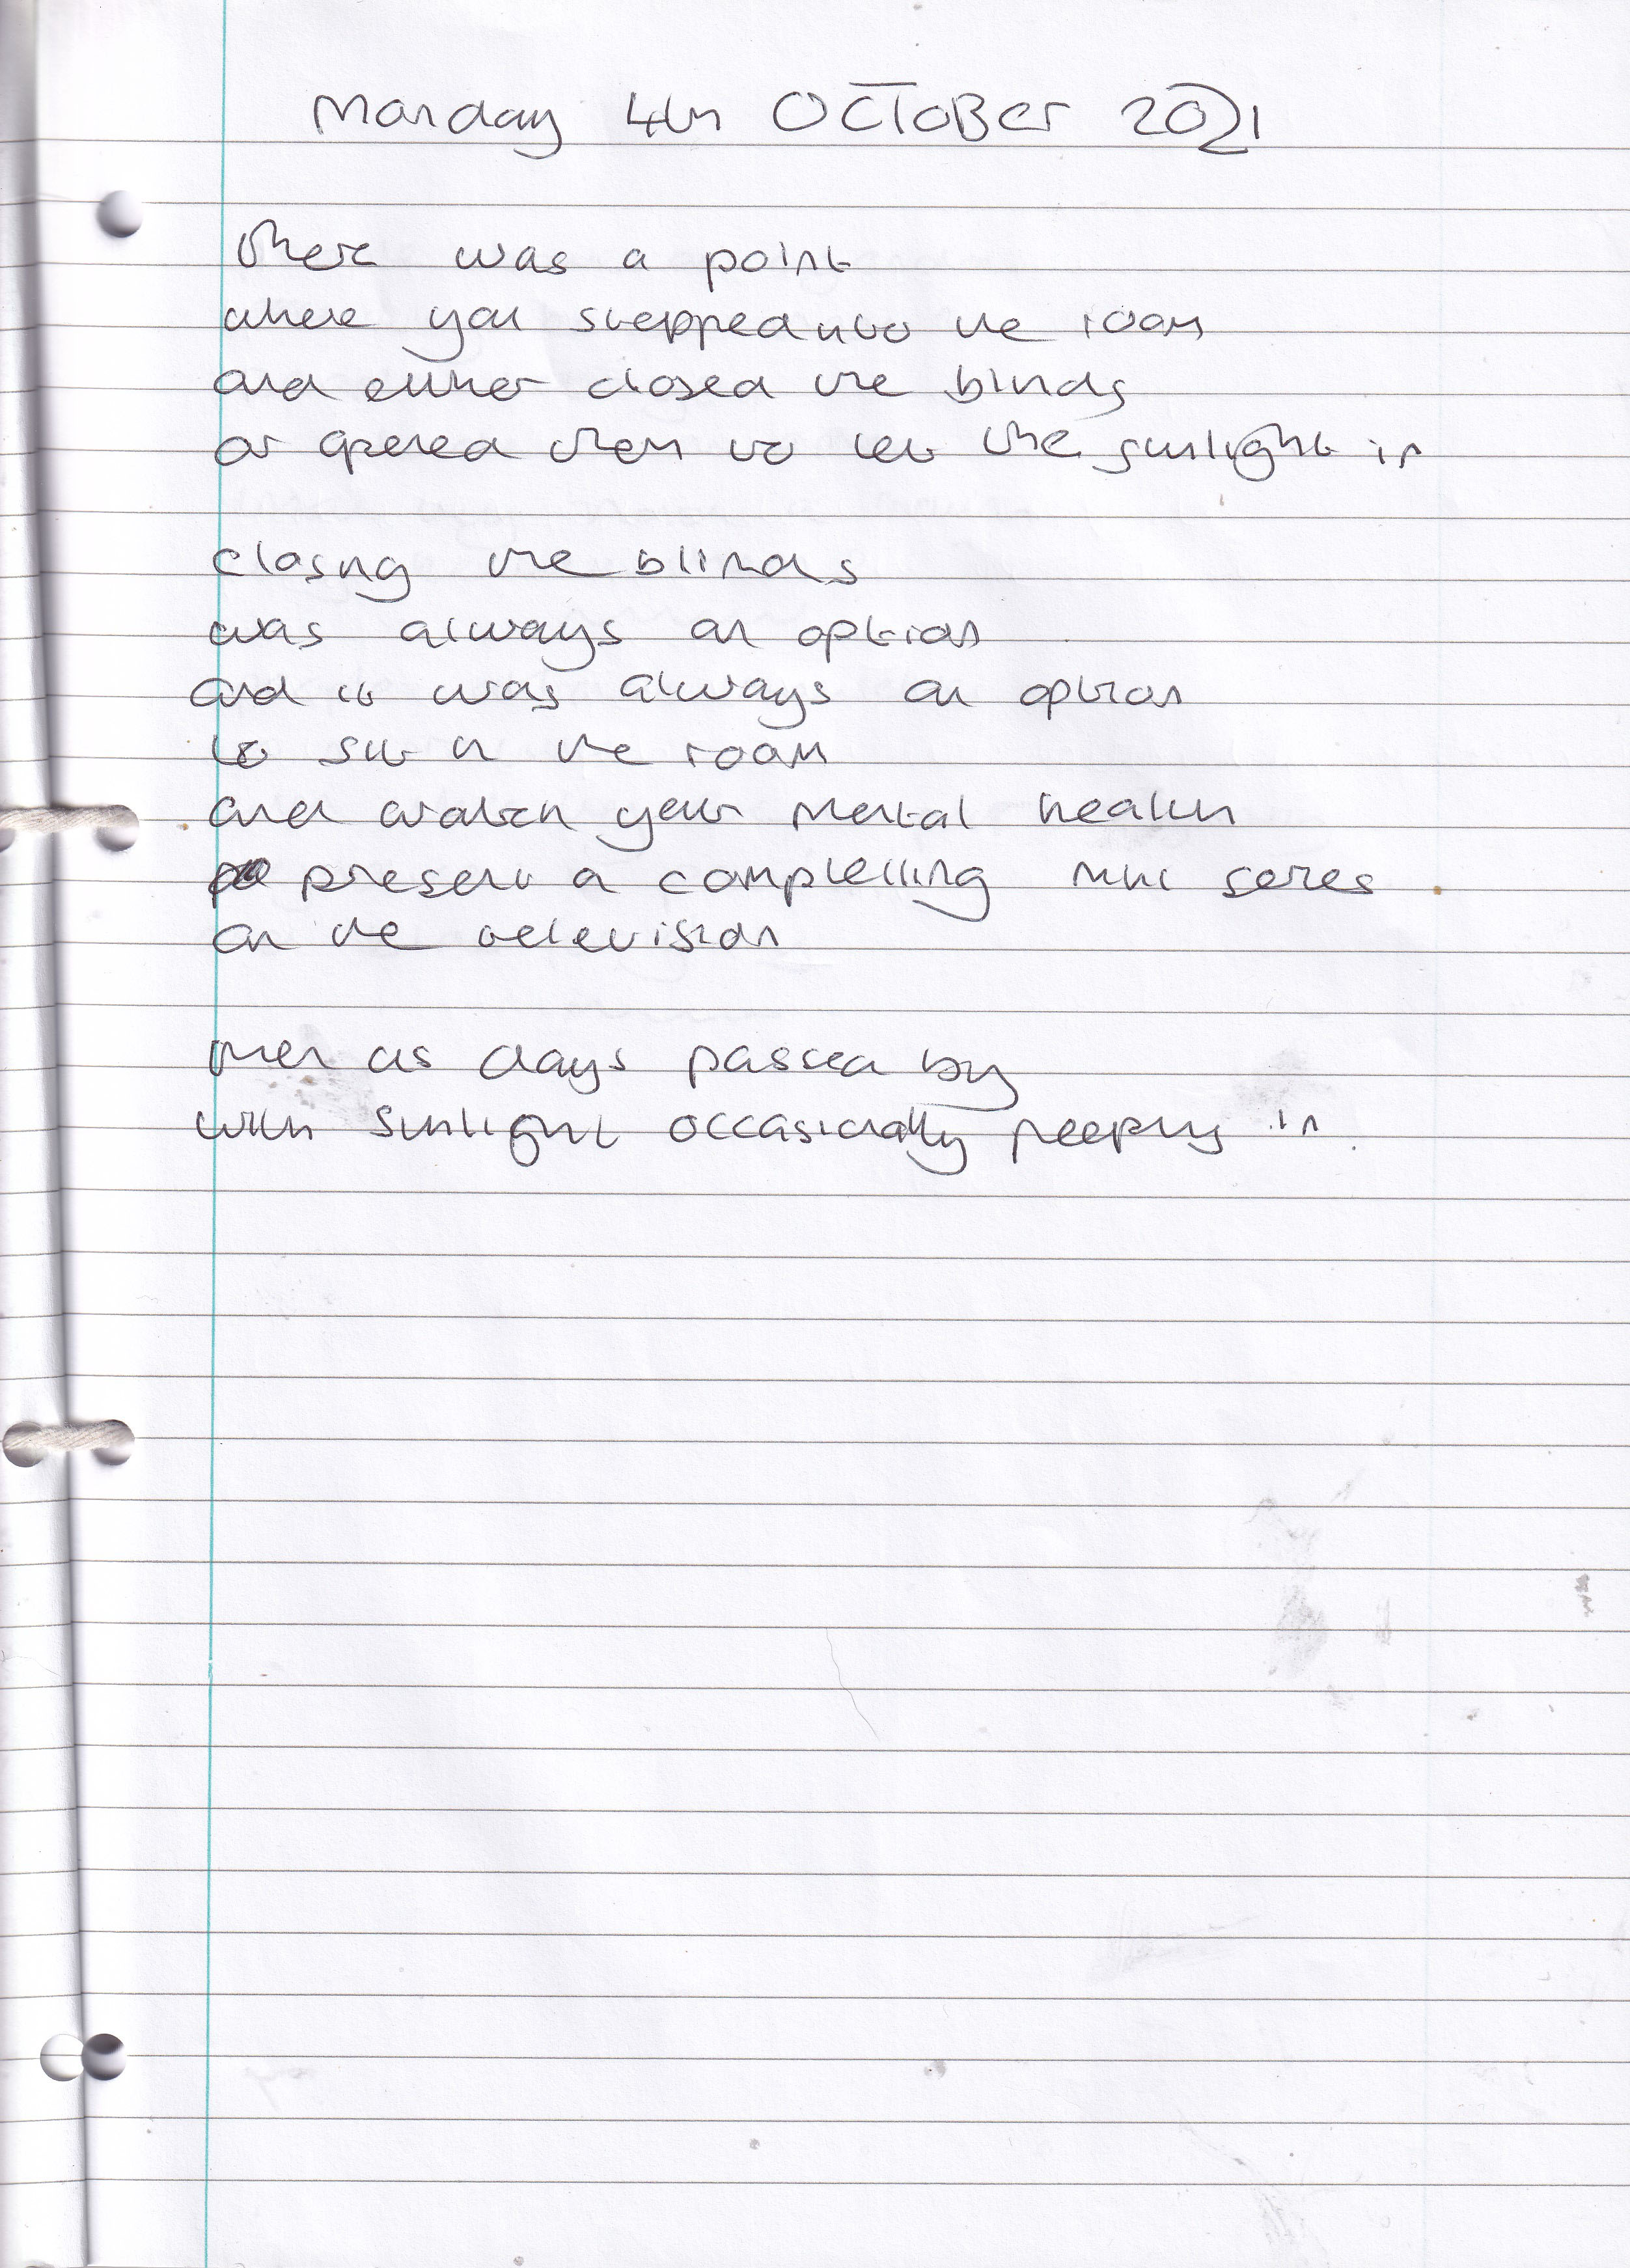 Monday 4th OCTOBER 2021
there was a point
where you stepped into the room
and either closed the blinds
or opened them to let the sunlight in
closing the blinds
was always an option
and it was always an option
to sit in the room
and watch your mental health
present a complelling mini series
on the television
then as days passed by
with sunlight occasionally peeping in